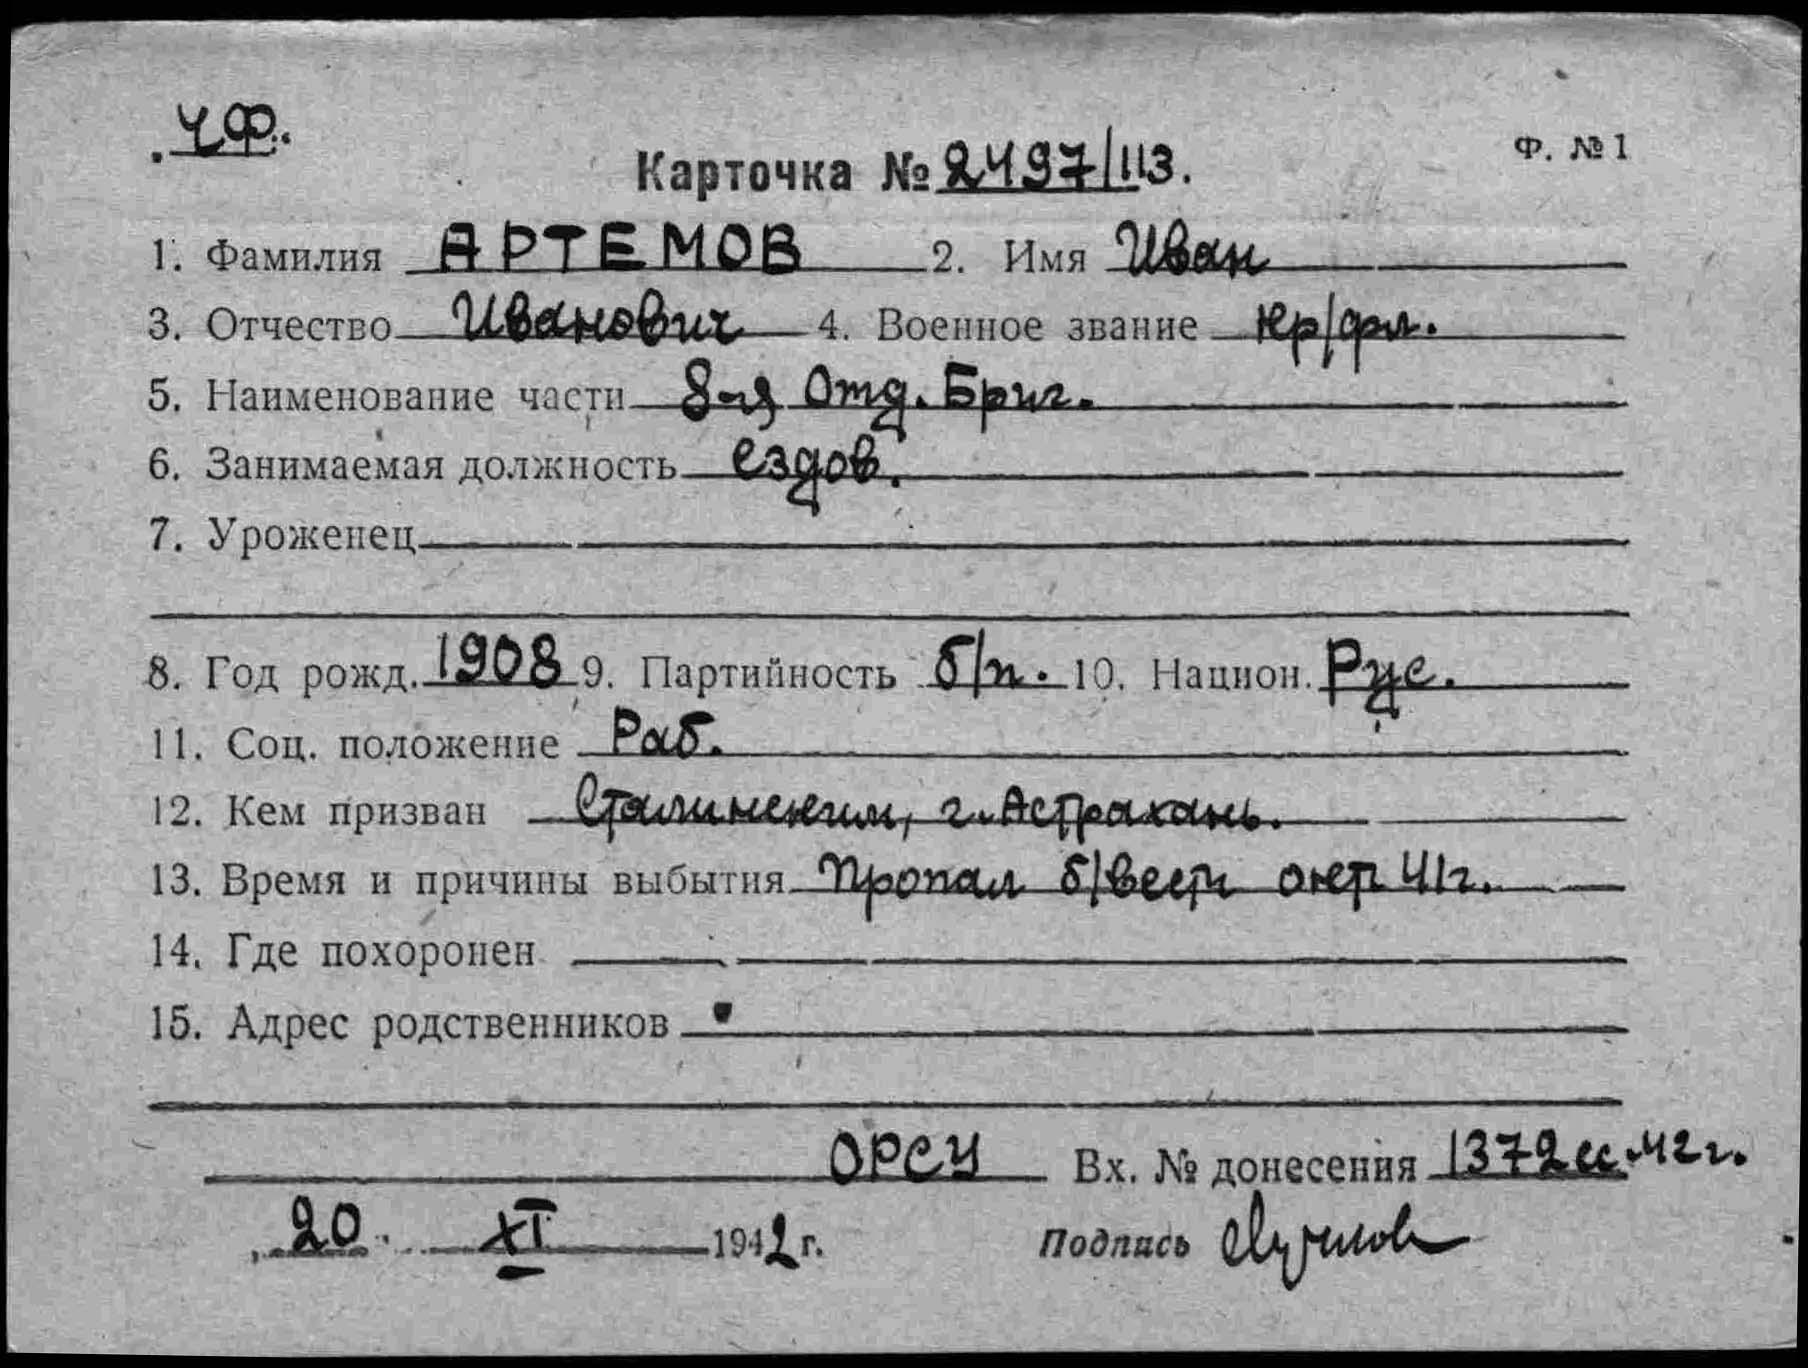 ЧФ.
Ф. №1
Карточка № 2497/113.
1. Фамилия АРТЕМОВ 2. Имя Иван
3. Отчество Иванович 4. Военное звание кр/фл.
5. Наименование части 8-я Отд. Бриг.
6. Занимаемая должность ездов.
7. Уроженец
8. Год рожд. 1908 9. Партийность б/п. 10. Национ. Рус.
11. Соц. положение Раб.
12. Кем призван Сталинским, г. Астрахань.
13. Время и причины выбытия Пропал б/вести окт 41г.
14. Где похоронен
15. Адрес родственников
ОРСУ Вх. № донесения 1372сс. 42г.
20. XI 1942 г. Подпись